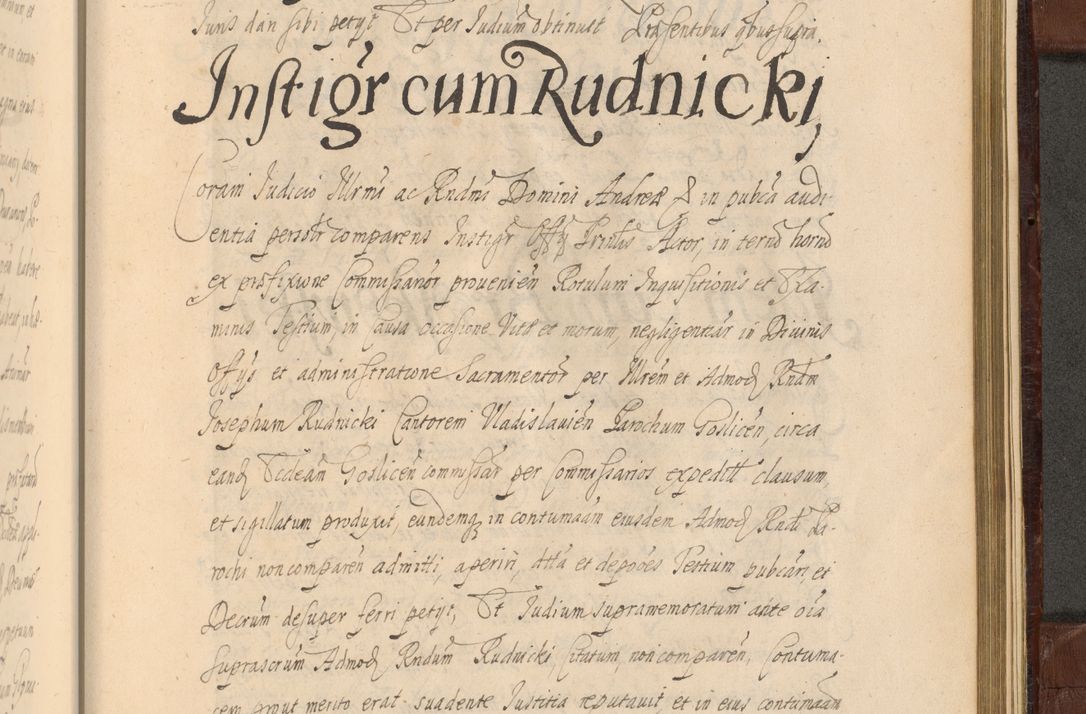 Juris dari sibi petyt Et per Judium obtinuit Præsentibus quibus supra.
Instigr cum Rudnicki
Coram Judicio Illrmi ac Rndmi Domini Andreæ & in pubca audi-
entia personr comparens Instigr Offy Actor, in termo horno
ex præfixione Commissarior provenien Rotulum Inquisitionis et Exa-
minis Testium, in causa occasione Vitæ et morum, negligentiar in Divinis
Offys et administratione Sacramentor per Illrem et Admod Rndm
Josephum Rudnicki Cantorem Vladislavien Parochum Goslicen, circa
eand Eccleam Goslicen commissar per Commissarios expedit clausum,
et sigillatum produxit, eundemq in contumaam eiusdem Admod Rndi Pa-
rochi non comparen admitti, aperiri, Atta et depoes Testium pubcari, et
Decrum desuper ferri petyt, Et Judium supramemoratum ante oia
suprascrum Admod Rndum Rudnicki Citatum, non comparen, Contuma-
cem prout merito erat suadente Justitia reputavit, et in eius contumaam